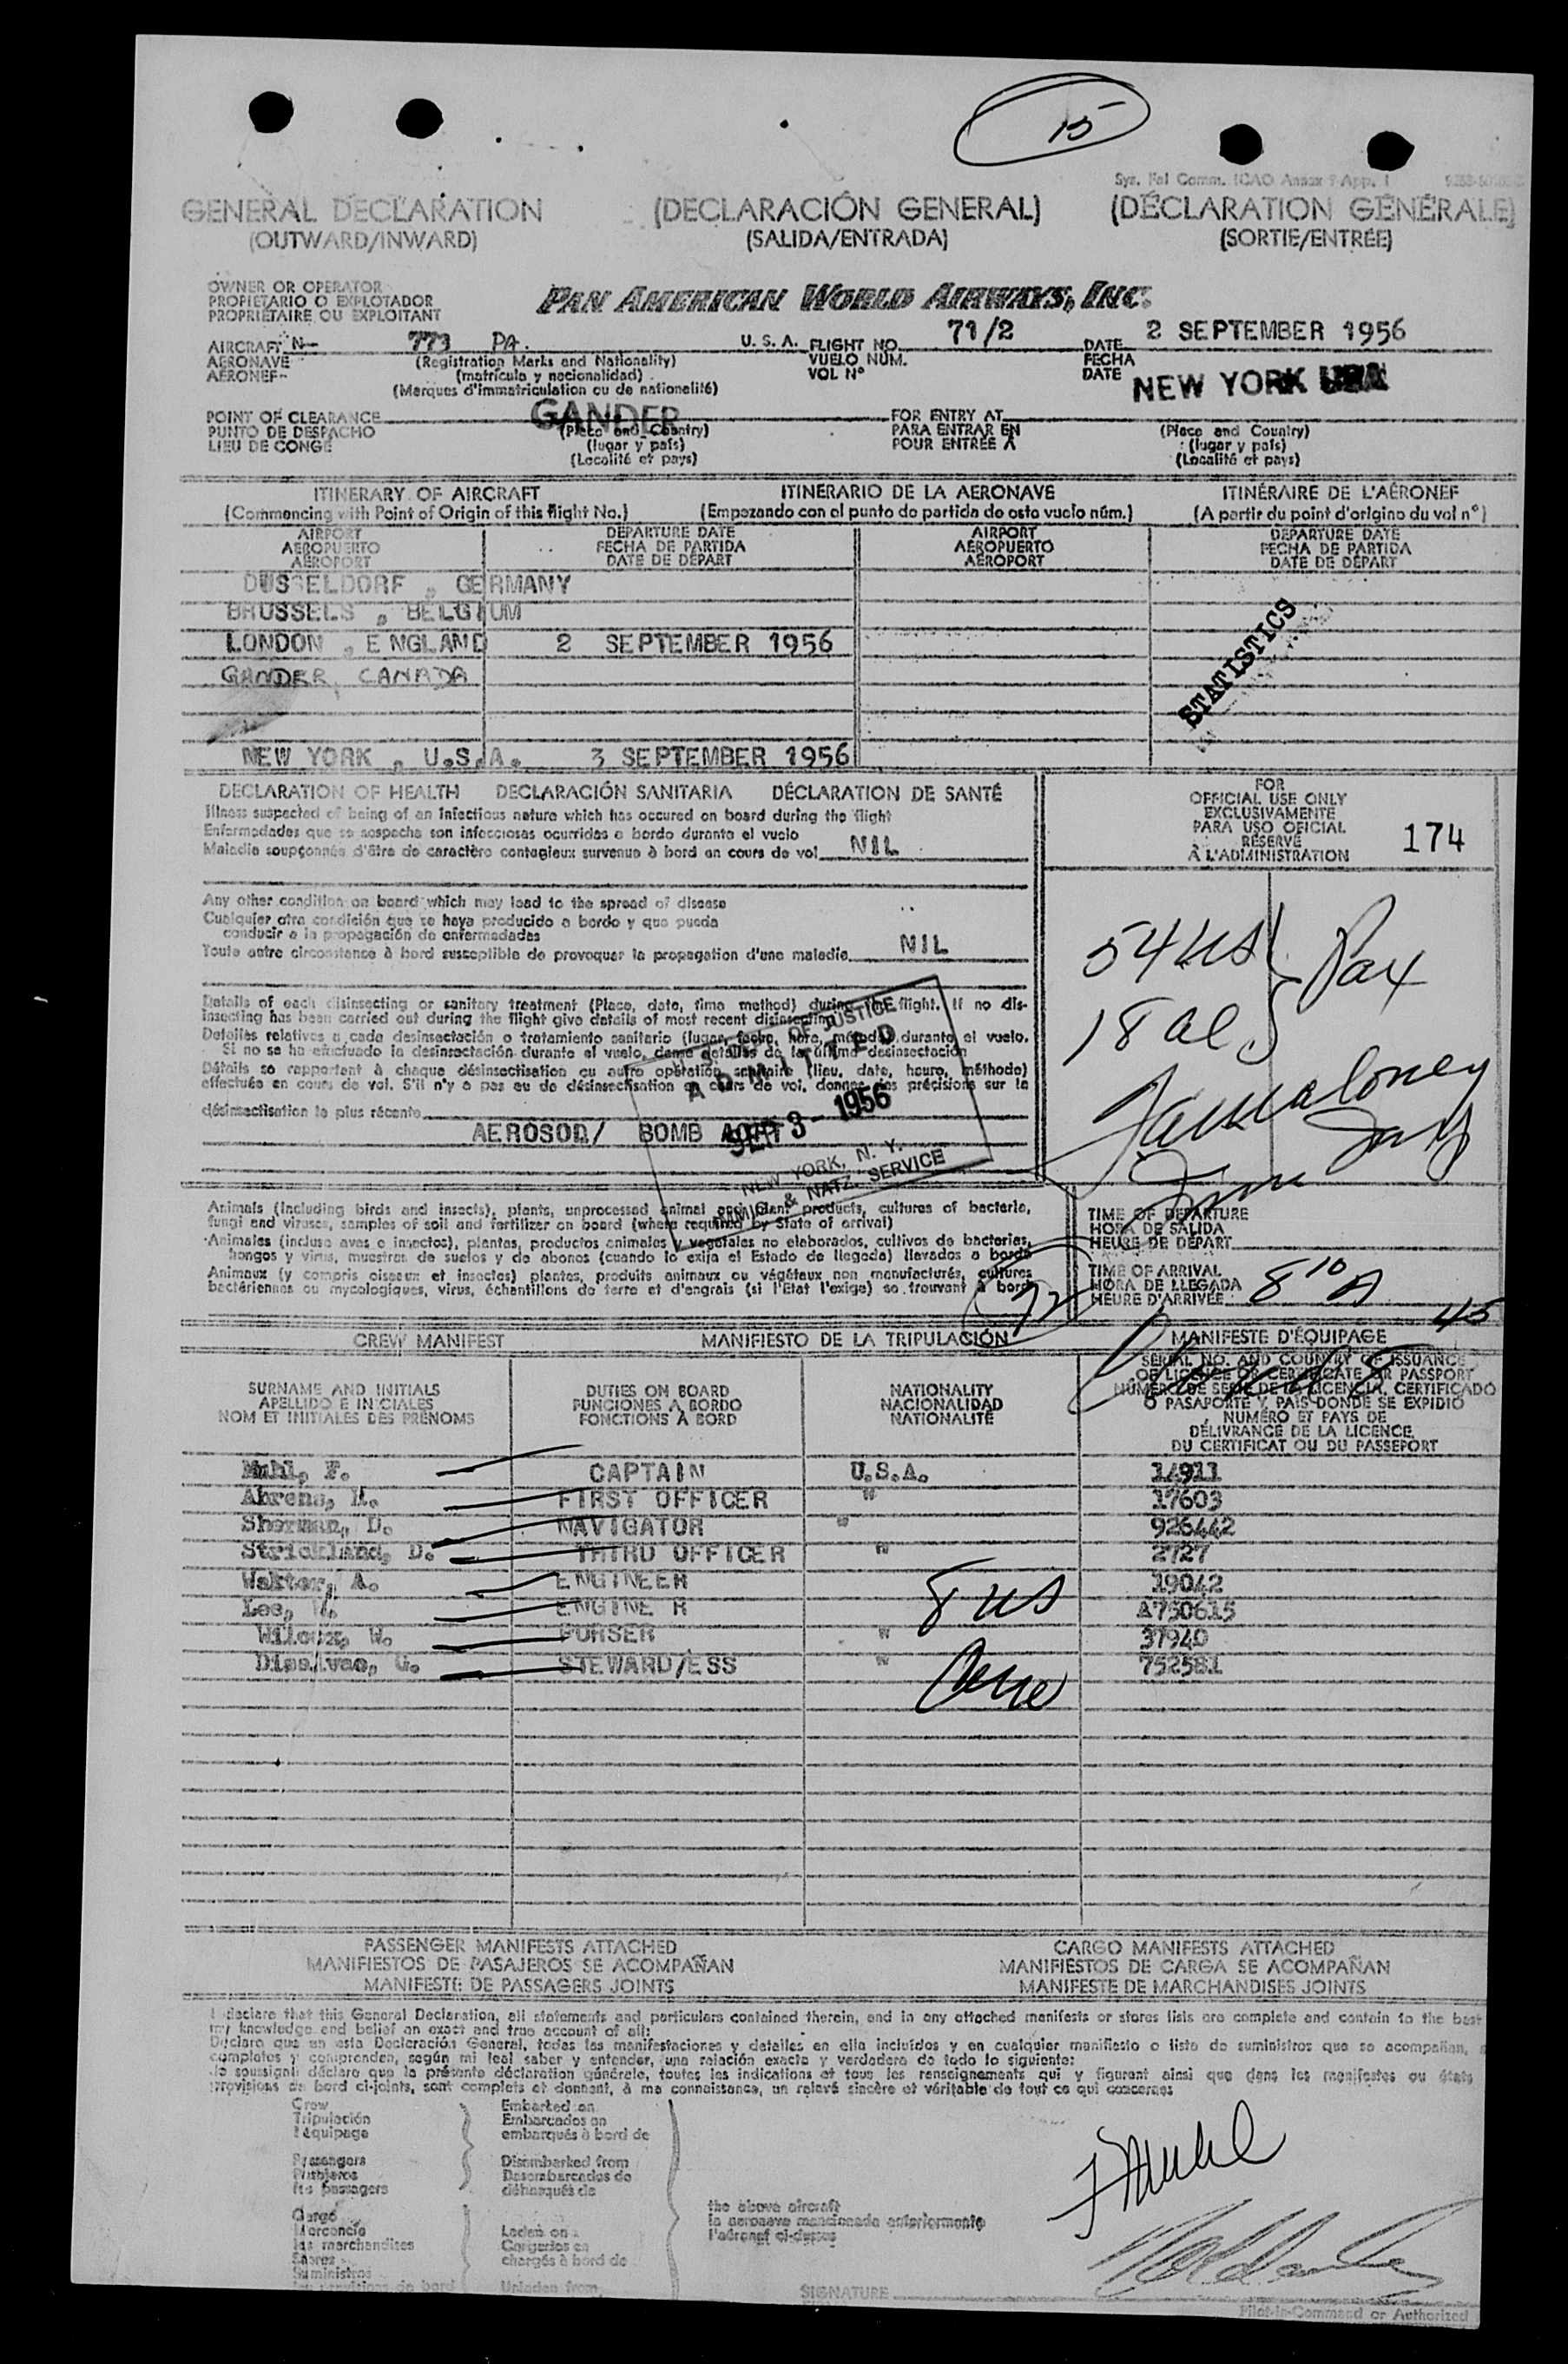 15
Syz. Fal Comm. ICAO Annex 9 App. 1
GENERAL DECLARATION (DECLARACIÓN GENERAL) (DÉCLARATION GÉNÉRALE)
(OUTWARD/INWARD) (SALIDA/ENTRADA) (SORTIE/ENTRÉE)
OWNER OR OPERATOR
PROPIETARIO O EXPLOTADOR
PROPRIÉTAIRE OU EXPLOITANT
PAN AMERICAN WORLD AIRWAYS, INC.
AIRCRAFT N- 773 PA. U. S. A. FLIGHT NO. 71/2 DATE 2 SEPTEMBER 1956
AERONAVE (Registration Marks and Nationality) VUELO NÚM. FECHA
AÉRONEF (matrícula y nacionalidad) VOL Nº DATE
(Marques d'immatriculation ou de nationalité)
NEW YORK USA
POINT OF CLEARANCE GANDER FOR ENTRY AT
PUNTO DE DESPACHO (Place and Country) PARA ENTRAR EN (Place and Country)
LIEU DE CONGÉ (lugar y país) POUR ENTRÉE À (lugar y país)
(Localité et pays) (Localité et pays)
ITINERARY OF AIRCRAFT ITINERARIO DE LA AERONAVE ITINÉRAIRE DE L'AÉRONEF
(Commencing with Point of Origin of this flight No.) (Empezando con el punto de partida de este vuelo núm.) (A partir du point d'origine du vol nº)
AIRPORT DEPARTURE DATE AIRPORT DEPARTURE DATE
AEROPUERTO FECHA DE PARTIDA AEROPUERTO FECHA DE PARTIDA
AÉROPORT DATE DE DÉPART AÉROPORT DATE DE DÉPART
DUSSELDORF , GERMANY
BRUSSELS , BELGIUM
LONDON , ENGLAND 2 SEPTEMBER 1956
GANDER, CANADA
STATISTICS
NEW YORK , U.S.A. 3 SEPTEMBER 1956
DECLARATION OF HEALTH DECLARACIÓN SANITARIA DÉCLARATION DE SANTÉ
Illness suspected of being of an infectious nature which has occured on board during the flight
Enfermedades que se sospecha son infecciosas ocurridas a bordo durante el vuelo
Maladie soupçonnée d'être de caractère contagieux survenue à bord en cours de vol NIL
FOR
OFFICIAL USE ONLY
EXCLUSIVAMENTE
PARA USO OFICIAL
RÉSERVÉ
À L'ADMINISTRATION
174
Any other condition on board which may lead to the spread of disease
Cualquier otra condición que se haya producido a bordo y que pueda
conducir a la propagación de enfermedades
Toute autre circonstance à bord susceptible de provoquer la propagation d'une maladie NIL
54 US
18 al
Pax
Details of each disinsecting or sanitary treatment (Place, date, time method) during the flight. If no dis-
insecting has been carried out during the flight give details of most recent disinsecting
Detalles relativos a cada desinsectación o tratamiento sanitario (lugar, fecha, hora, método) durante el vuelo.
Si no se ha efectuado la desinsectación durante el vuelo, dense detalles de la última desinsectación
Détails se rapportant à chaque désinsectisation ou autre opération sanitaire (lieu, date, heure, méthode)
effectuée en cours de vol. S'il n'y a pas eu de désinsectisation en cours de vol, donner des précisions sur la
désinsectisation la plus récente
AEROSOD/ BOMB
U. S. DEPT. OF JUSTICE
ADMITTED
SEP 3 - 1956
NEW YORK, N. Y.
IMMIG. & NATZ. SERVICE
Animals (including birds and insects), plants, unprocessed animal and plant products, cultures of bacteria,
fungi and viruses, samples of soil and fertilizer on board (where required by State of arrival)
Animales (incluso aves e insectos), plantas, productos animales y vegetales no elaborados, cultivos de bacterias,
hongos y virus, muestras de suelos y de abonos (cuando lo exija el Estado de llegada) llevados a bordo
Animaux (y compris oiseaux et insectes) plantes, produits animaux ou végétaux non manufacturés, cultures
bactériennes ou mycologiques, virus, échantillons de terre et d'engrais (si l'Etat l'exige) se trouvant à bord
72
TIME OF DEPARTURE
HORA DE SALIDA
HEURE DE DÉPART
TIME OF ARRIVAL
HORA DE LLEGADA
HEURE D'ARRIVÉE 8 10 A
45
CREW MANIFEST MANIFIESTO DE LA TRIPULACIÓN MANIFESTE D'ÉQUIPAGE
SURNAME AND INITIALS DUTIES ON BOARD NATIONALITY
APELLIDO E INICIALES FUNCIONES A BORDO NACIONALIDAD
NOM ET INITIALES DES PRÉNOMS FONCTIONS À BORD NATIONALITÉ
SERIAL NO. AND COUNTRY OF ISSUANCE
OF LICENCE OR CERTIFICATE OR PASSPORT
NÚMERO DE SERIE DE LA LICENCIA, CERTIFICADO
O PASAPORTE Y PAÍS DONDE SE EXPIDIÓ
NUMÉRO ET PAYS DE
DÉLIVRANCE DE LA LICENCE,
DU CERTIFICAT OU DU PASSEPORT
Muhl, F. CAPTAIN U.S.A. 14911
Ahrens, H. FIRST OFFICER " 17603
Sherman, D. NAVIGATOR " 926442
Strickland, D. THIRD OFFICER " 2727
Walter, A. ENGINEER 19042
Lee, W. ENGINE R A750615
Wilcox, W. PURSER " 37940
STEWARD/ESS " 752581
8 US
PASSENGER MANIFESTS ATTACHED CARGO MANIFESTS ATTACHED
MANIFIESTOS DE PASAJEROS SE ACOMPAÑAN MANIFIESTOS DE CARGA SE ACOMPAÑAN
MANIFESTE DE PASSAGERS JOINTS MANIFESTE DE MARCHANDISES JOINTS
I declare that this General Declaration, all statements and particulars contained therein, and in any attached manifests or stores lists are complete and contain to the best
my knowledge and belief an exact and true account of all:
Declaro que en esta Declaración General, todas las manifestaciones y detalles en ella incluídos y en cualquier manifiesto o lista de suministros que se acompañan,
completos y comprenden, según mi leal saber y entender, una relación exacta y verdadera de todo lo siguiente:
Je soussigné déclare que la présente déclaration générale, toutes les indications et tous les renseignements qui y figurent ainsi que dans les manifestes ou états
provisions de bord ci-joints, sont complets et donnent, à ma connaissance, un relevé sincère et véritable de tout ce qui concernes
Crew Embarked on
Tripulación Embarcados en
l'équipage embarqués à bord de
Passengers Disembarked from
Pasajeros Desembarcados de
les passagers débarqués de
Cargo the above aircraft
Mercancía Laden on la aeronave mencionada anteriormente
les marchandises Cargados en l'aéronef ci-dessus
Stores chargés à bord de
Suministros
Unladen from
F Muhl
SIGNATURE
Pilot-in-Command or Authorized